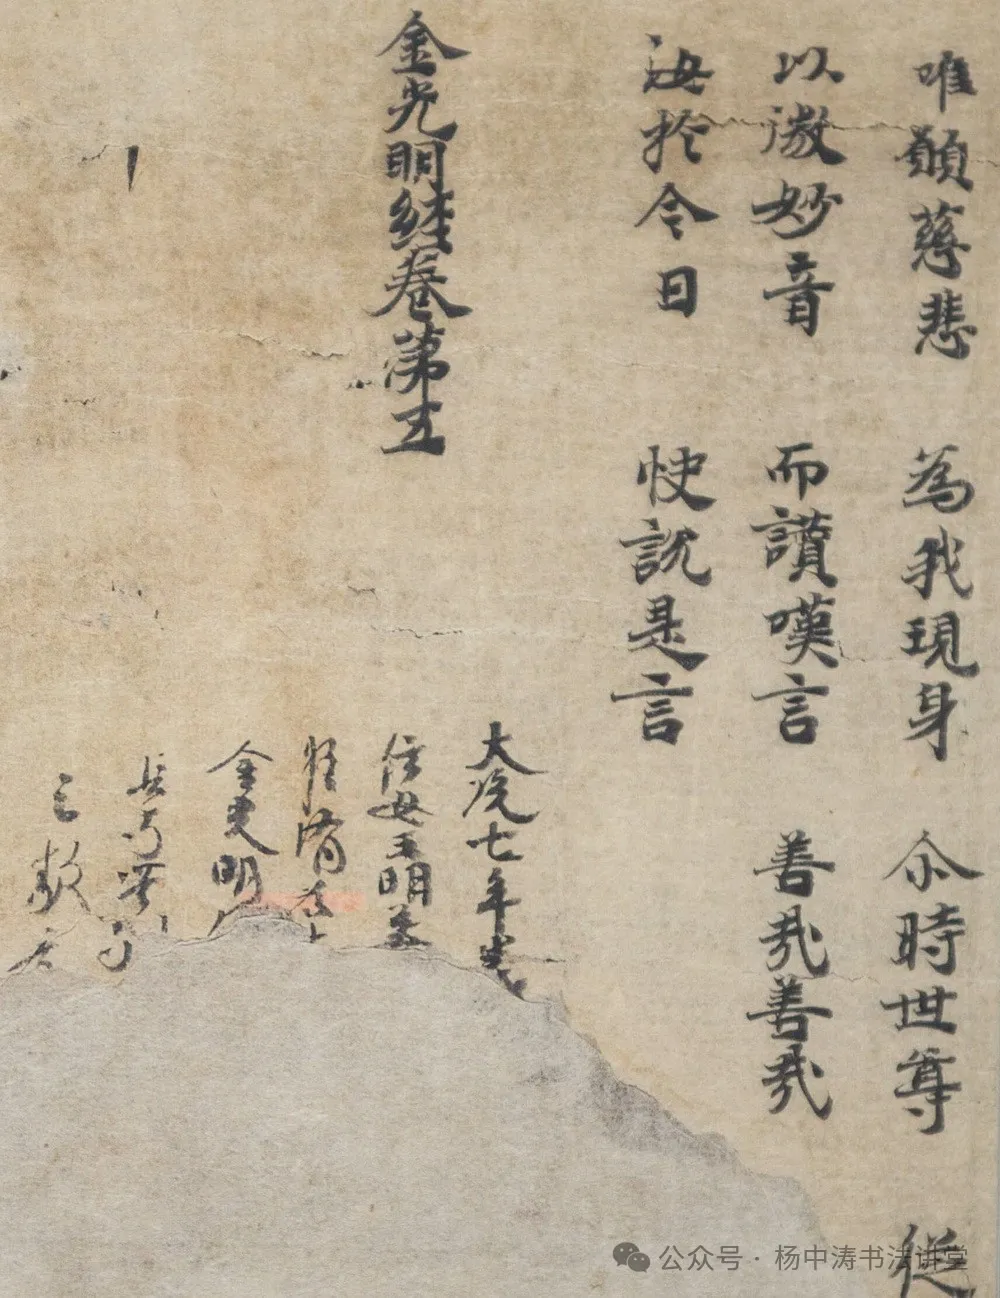 唯願慈悲 為我現身 尒時世尊 從
以微妙音 而讃嘆言 善哉善哉
汝於今日 快說是言
金光明經卷第五
大統七年歲
信女王明姜
金光明
三
公众号 · 杨中涛书法讲堂